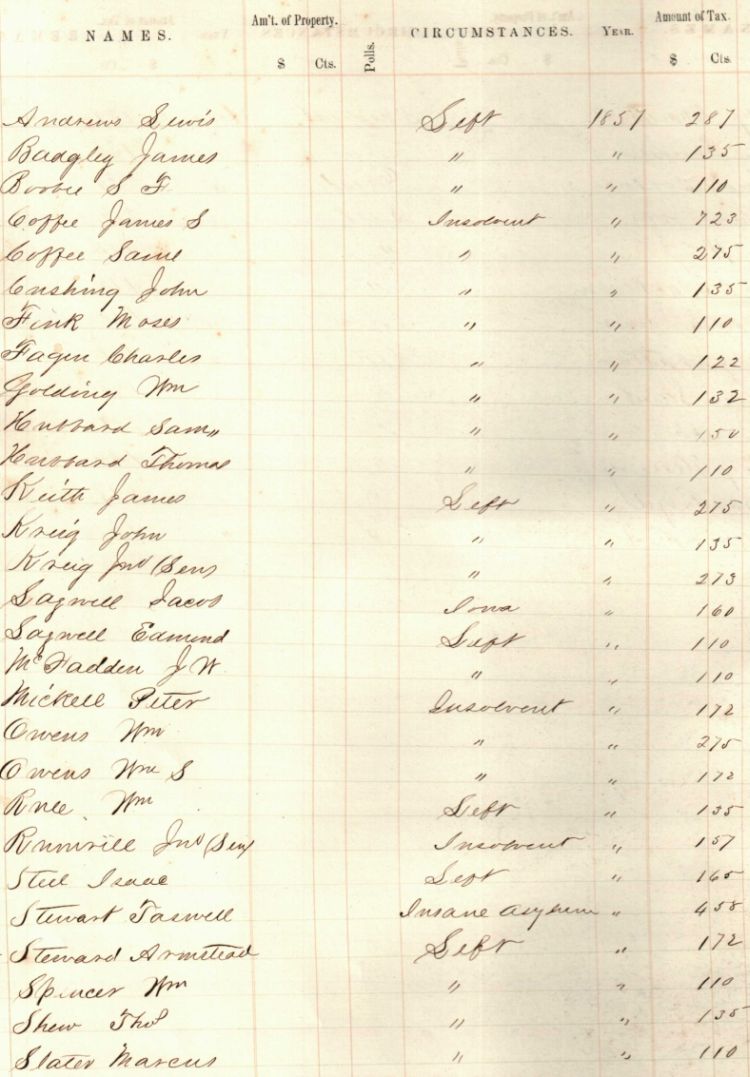 NAMES. Am't. of Property. Polls. CIRCUMSTANCES. YEAR. Amount of Tax.
$ Cts. $ Cts.
Andrews Lewis Left 1857 2 87
Badgley James " " 1 35
Boobie S F " " 1 10
Coffee James S Insolvent " 7 23
Coffee Saml " " 2 75
Cushing John " " 1 35
Fink Moses " " 1 10
Fagin Charles " " 1 22
Golding Wm " " 1 32
Hubbard Sam,, " " 1 50
Hubbard Thomas " " 1 10
Keith James Left " 2 75
Kreig John " " 1 35
Kreig Jno (Sen) " " 2 73
Lagwell Jacob Iowa " 1 60
Lagwell Edmond Left " 1 10
McFadden J W " " 1 10
Mickell Peter Insolvent " 1 72
Owens Wm " " 2 75
Owens Wm S " " 1 72
Wm Left " 1 35
Rumrill Jno (Sen) Insolvent " 1 57
Steel Isaac Left " 1 65
Stewart Taswell Insane Asylum " 4 58
Steward Armstead Left " 1 72
Spencer Wm " " 1 10
Shew Thos " " 1 35
Slater Marcus " " 1 10